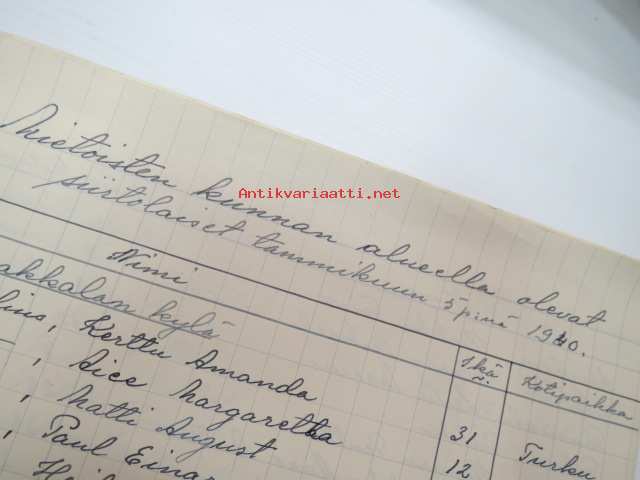 Mietoisten kunnan alueella olevat
siirtolaiset tammikuun 5 p:nä 1940.
Antikvariaatti.net
Nimi Ikä Kotipaikka
akkalan kylä
Kerttu Amanda 31 Turku
" Aice Margaretha 12
" Matti August
" Paul Einar